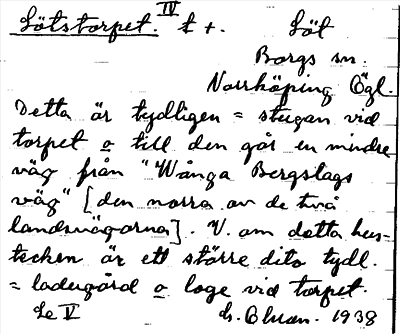 Lötstorpet. IV t +. Löt
Borgs sn.
Norrköping Ögl.
Detta är tydligen = stugan vid
torpet o till den går en mindre
väg från "Wånga Bergslags
väg" [den norra av de två
landsvägarna]. V. om detta hus-
tecken är ett större dito tydl.
= ladugård o loge vid torpet.
Le V 1938